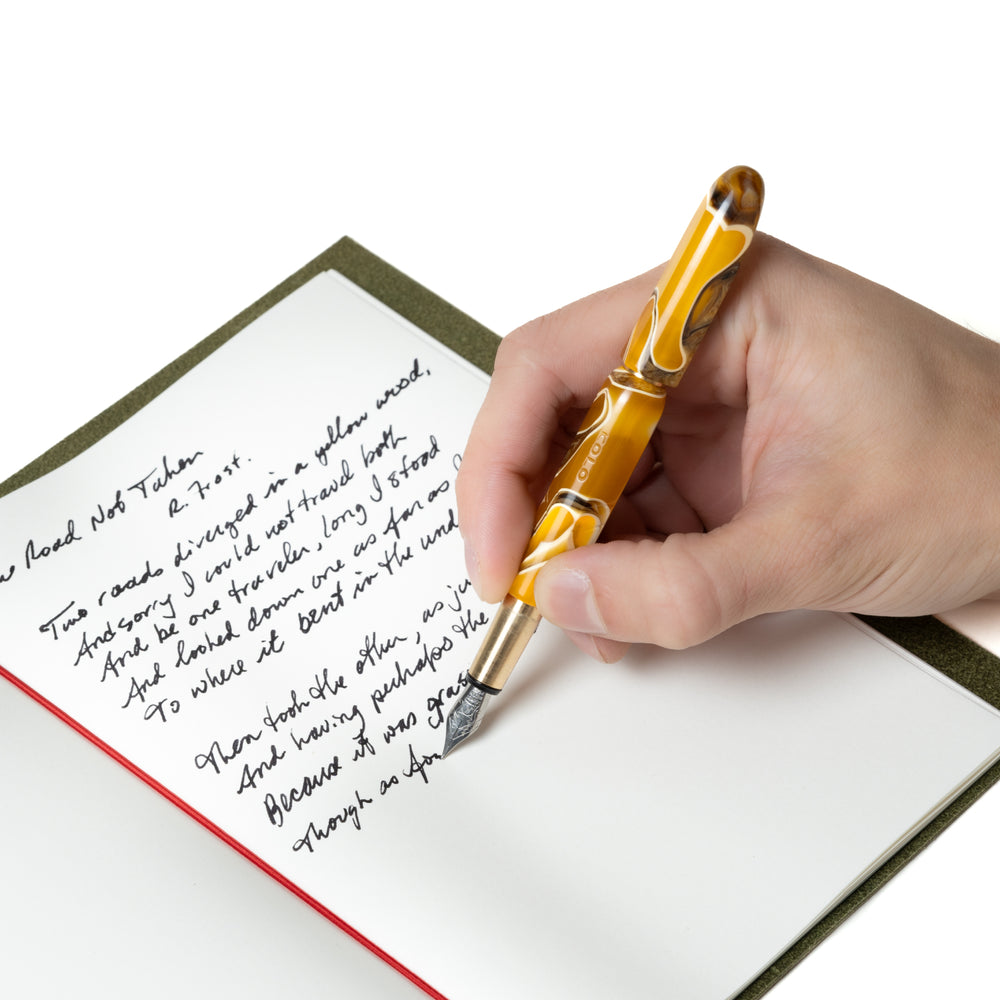 Road Not Taken
R. Frost.
Two roads diverged in a yellow wood,
And sorry I could not travel both
And be one traveler, long I stood
And looked down one as far as
To where it bent in the und
Then took the other, as ju
And having perhaps the
Because it was gras
Though as for